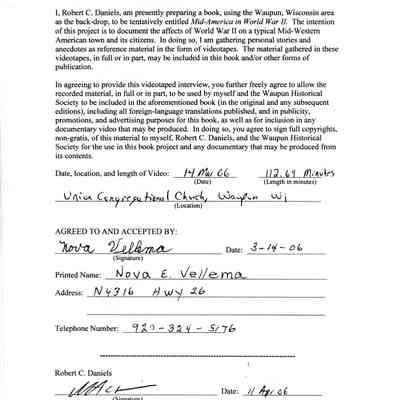 I, Robert C. Daniels, am presently preparing a book, using the Waupun, Wisconsin area
as the back-drop, to be tentatively entitled Mid-America in World War II. The intention
of this project is to document the affects of World War II on a typical Mid-Western
American town and its citizens. In doing so, I am gathering personal stories and
anecdotes as reference material in the form of videotapes. The material gathered in these
videotapes, in full or in part, may be included in this book and/or other forms of
publication.
In agreeing to provide this videotaped interview, you further freely agree to allow the
recorded material, in full or in part, to be used by myself and the Waupun Historical
Society to be included in the aforementioned book (in the original and any subsequent
editions), including all foreign-language translations published, and in publicity,
promotions, and advertising purposes for this book, as well as for inclusion in any
documentary video that may be produced. In doing so, you agree to sign full copyrights,
non-gratis, of this material to myself, Robert C. Daniels, and the Waupun Historical
Society for the use in this book project and any documentary that may be produced from
its contents.
Date, location, and length of Video: 14 Mar 06 112.64 Minutes
(Date) (Length in minutes)
Union Congregational Church, Waupun Wi
(Location)
AGREED TO AND ACCEPTED BY:
Nova Vellema Date: 3-14-06
(Signature)
Printed Name: Nova E. Vellema
Address: N4316 Hwy 26
Telephone Number: 920-324-5176
Robert C. Daniels
Date: 11 Apr 06
(Signature)